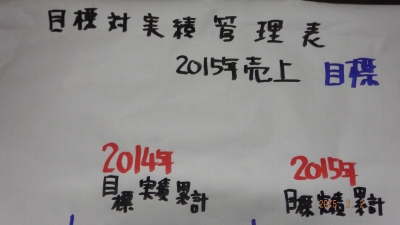 目標対実績管理表
2015年売上 目標
2014年 2015年
目標 実績 累計 目標 実績 累計